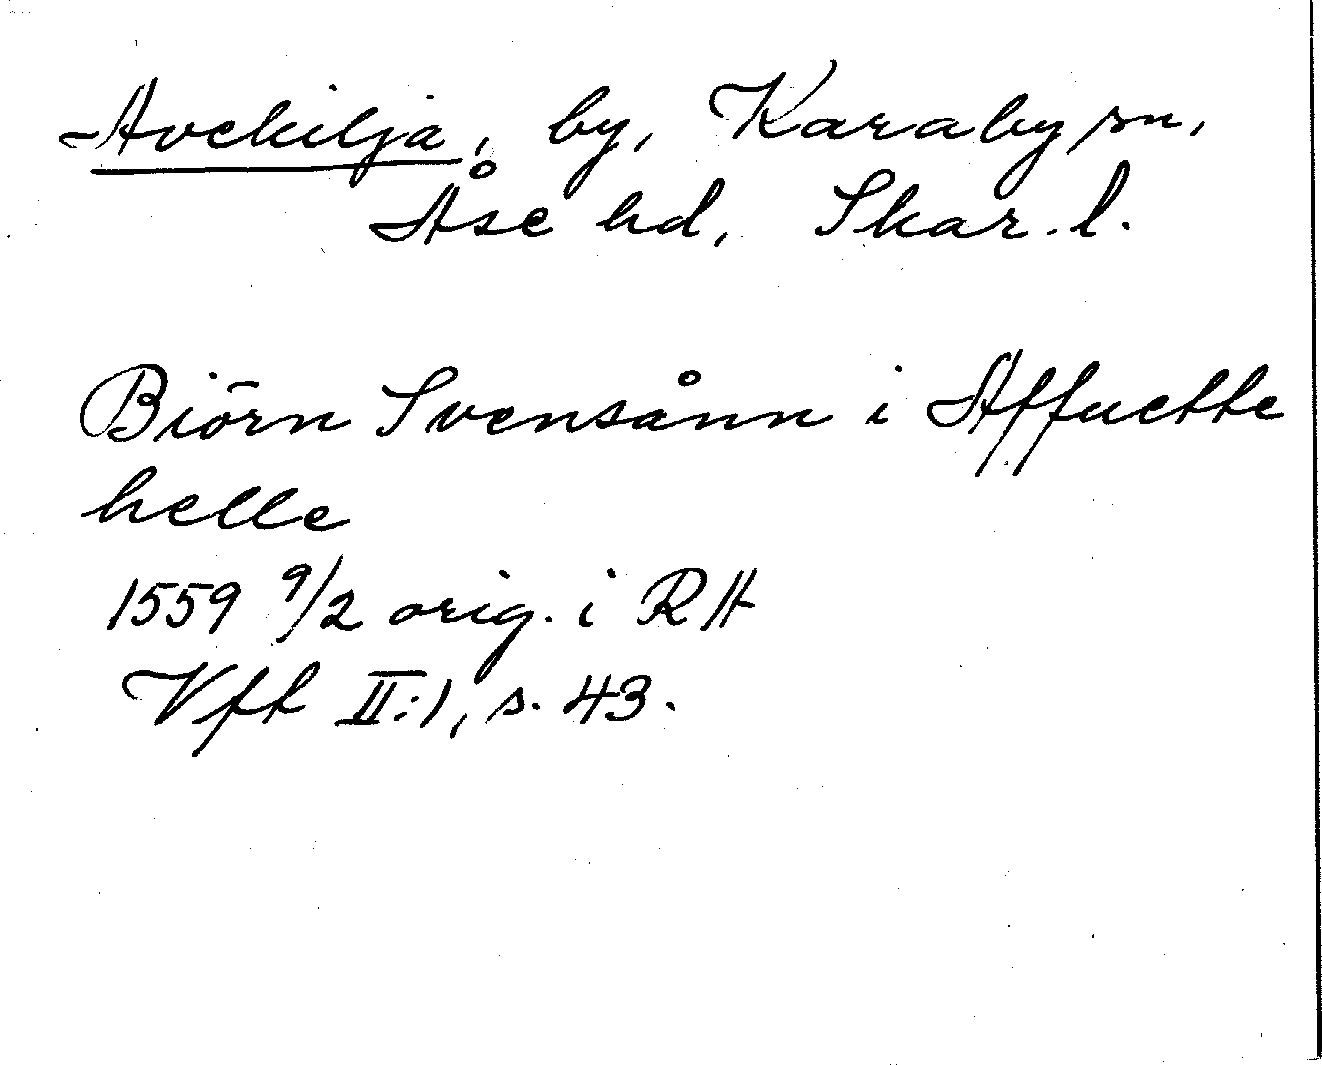 Avekilja, by, Karaby sn,
Åse hd, Skar. l.
Biörn Svensånn i Affuetke
helle
1559 9/2 orig. i RA
Vft II:1, s. 43.